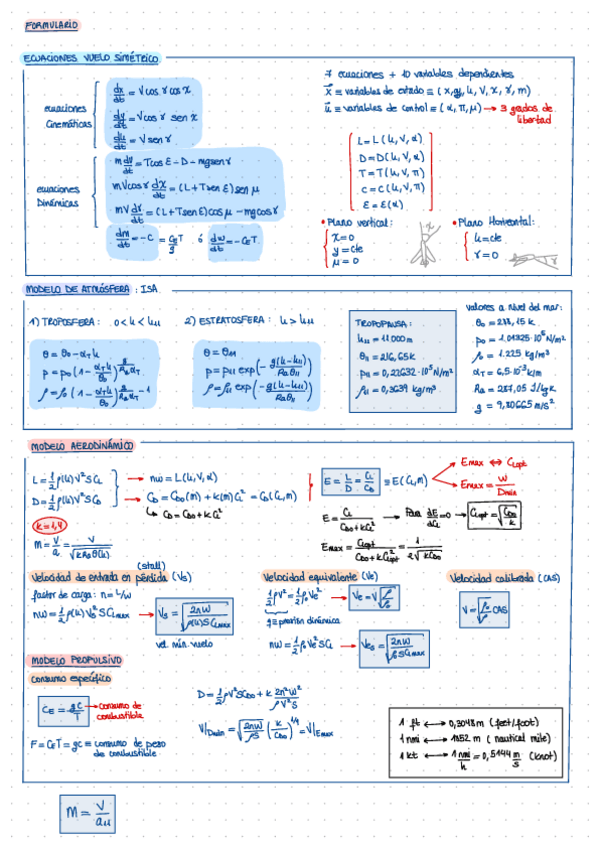 FORMULARIO
ECUACIONES VUELO SIMÉTRICO
ecuaciones
Cinemáticas
dx/dt = V cos γ cos χ
dy/dt = V cos γ sen χ
dh/dt = V sen γ
ecuaciones
Dinámicas
m dV/dt = T cos ε - D - mg sen γ
mV cos γ dχ/dt = (L + T sen ε) sen μ
mV dγ/dt = (L + T sen ε) cos μ - mg cos γ
dm/dt = -C = C_E T/g ó dw/dt = -C_E T
7 ecuaciones + 10 variables dependientes
x ≡ variables de estado ≡ (x, y, h, V, χ, γ, m)
u ≡ variables de control ≡ (α, π, μ) → 3 grados de
libertad
L = L(h, V, α)
D = D(h, V, α)
T = T(h, V, π)
C = C(h, V, π)
ε = ε(α)
• Plano vertical:
χ = 0
y = cte
μ = 0
• Plano Horizontal:
h = cte
γ = 0
MODELO DE ATMÓSFERA : ISA
1) TROPOSFERA : 0 < h < h₁₁
θ = θ₀ - α_T h
p = p₀ (1 - α_T h/θ₀)^(g/(R_a α_T))
ρ = ρ₀ (1 - α_T h/θ₀)^(g/(R_a α_T) - 1)
2) ESTRATOSFERA : h > h₁₁
θ = θ₁₁
p = p₁₁ exp(- g(h-h₁₁)/(R_a θ₁₁))
ρ = ρ₁₁ exp(- g(h-h₁₁)/(R_a θ₁₁))
TROPOPAUSA :
h₁₁ = 11.000 m
θ₁₁ = 216,65 K
p₁₁ = 0,22632·10⁵ N/m²
ρ₁₁ = 0,3639 kg/m³
valores a nivel del mar:
θ₀ = 288,15 K
p₀ = 1.01325·10⁵ N/m²
ρ₀ = 1.225 kg/m³
α_T = 6,5·10⁻³ K/m
R_a = 287,05 J/kgK
g = 9,80665 m/s²
MODELO AERODINÁMICO
L = 1/2 ρ(h) V² S C_L
D = 1/2 ρ(h) V² S C_D
→ nw = L(h, V, α)
→ C_D = C_D0(M) + k(M) C_L² = C_D(C_L, M)
↳ C_D = C_D0 + k C_L²
E = L/D = C_L/C_D = E(C_L, M)
Emax ↔ C_Lopt
Emax = W/Dmin
k = 1,4
M = V/a = V/√(k R_a θ(h))
E = C_L/(C_D0 + k C_L²) → Para dE/dC_L = 0 → C_Lopt = √(C_D0/k)
Emax = C_Lopt/(C_D0 + k C_Lopt²) = 1/(2√(k C_D0))
(stall)
Velocidad de entrada en pérdida (Vs)
factor de carga : n = L/w
nw = 1/2 ρ(h) Vs² S C_Lmax → Vs = √(2nW/(ρ(h) S C_Lmax))
vel. mín. vuelo
Velocidad equivalente (Ve)
1/2 ρV² = 1/2 ρ₀Ve² → Ve = V√(ρ/ρ₀)
q ≡ presión dinámica
nw = 1/2 ρ₀ Ve² S C_L → Ves = √(2nW/(ρ₀ S C_Lmax))
Velocidad calibrada (CAS)
V = √(ρ₀/ρ) CAS
MODELO PROPULSIVO
consumo específico
C_E = gC/T → consumo de
combustible
F = C_E T = gC ≡ consumo de peso
de combustible
D = 1/2 ρV² S C_D0 + k 2n²W²/(ρV²S)
V|Dmin = √(2nW/(ρS)) (k/C_D0)^(1/4) = V|Emax
1 ft ↔ 0,3048 m (feet/foot)
1 nmi ↔ 1852 m (nautical mile)
1 kt ↔ 1 nmi/h = 0,5144 m/s (knot)
M = V/a₁₁